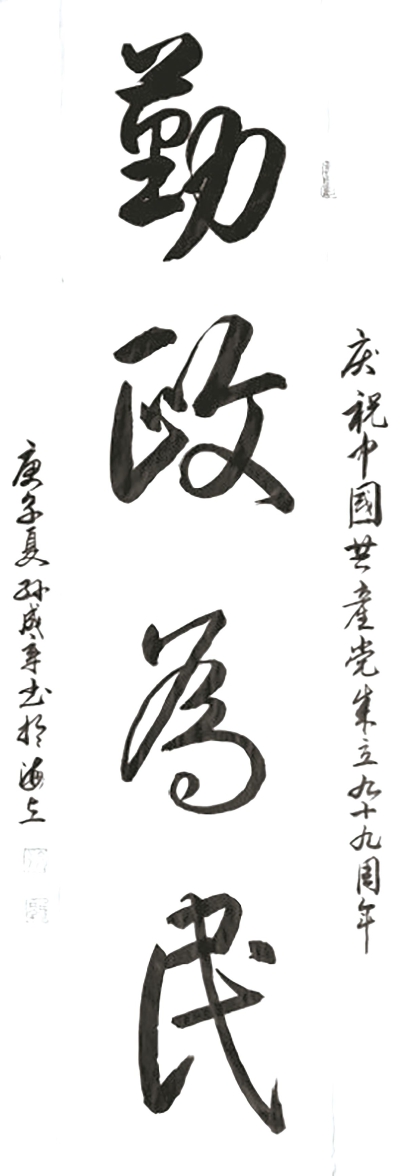 庆祝中國共產党成立九十九周年
勤政為民
庚子夏孙成军书於海上